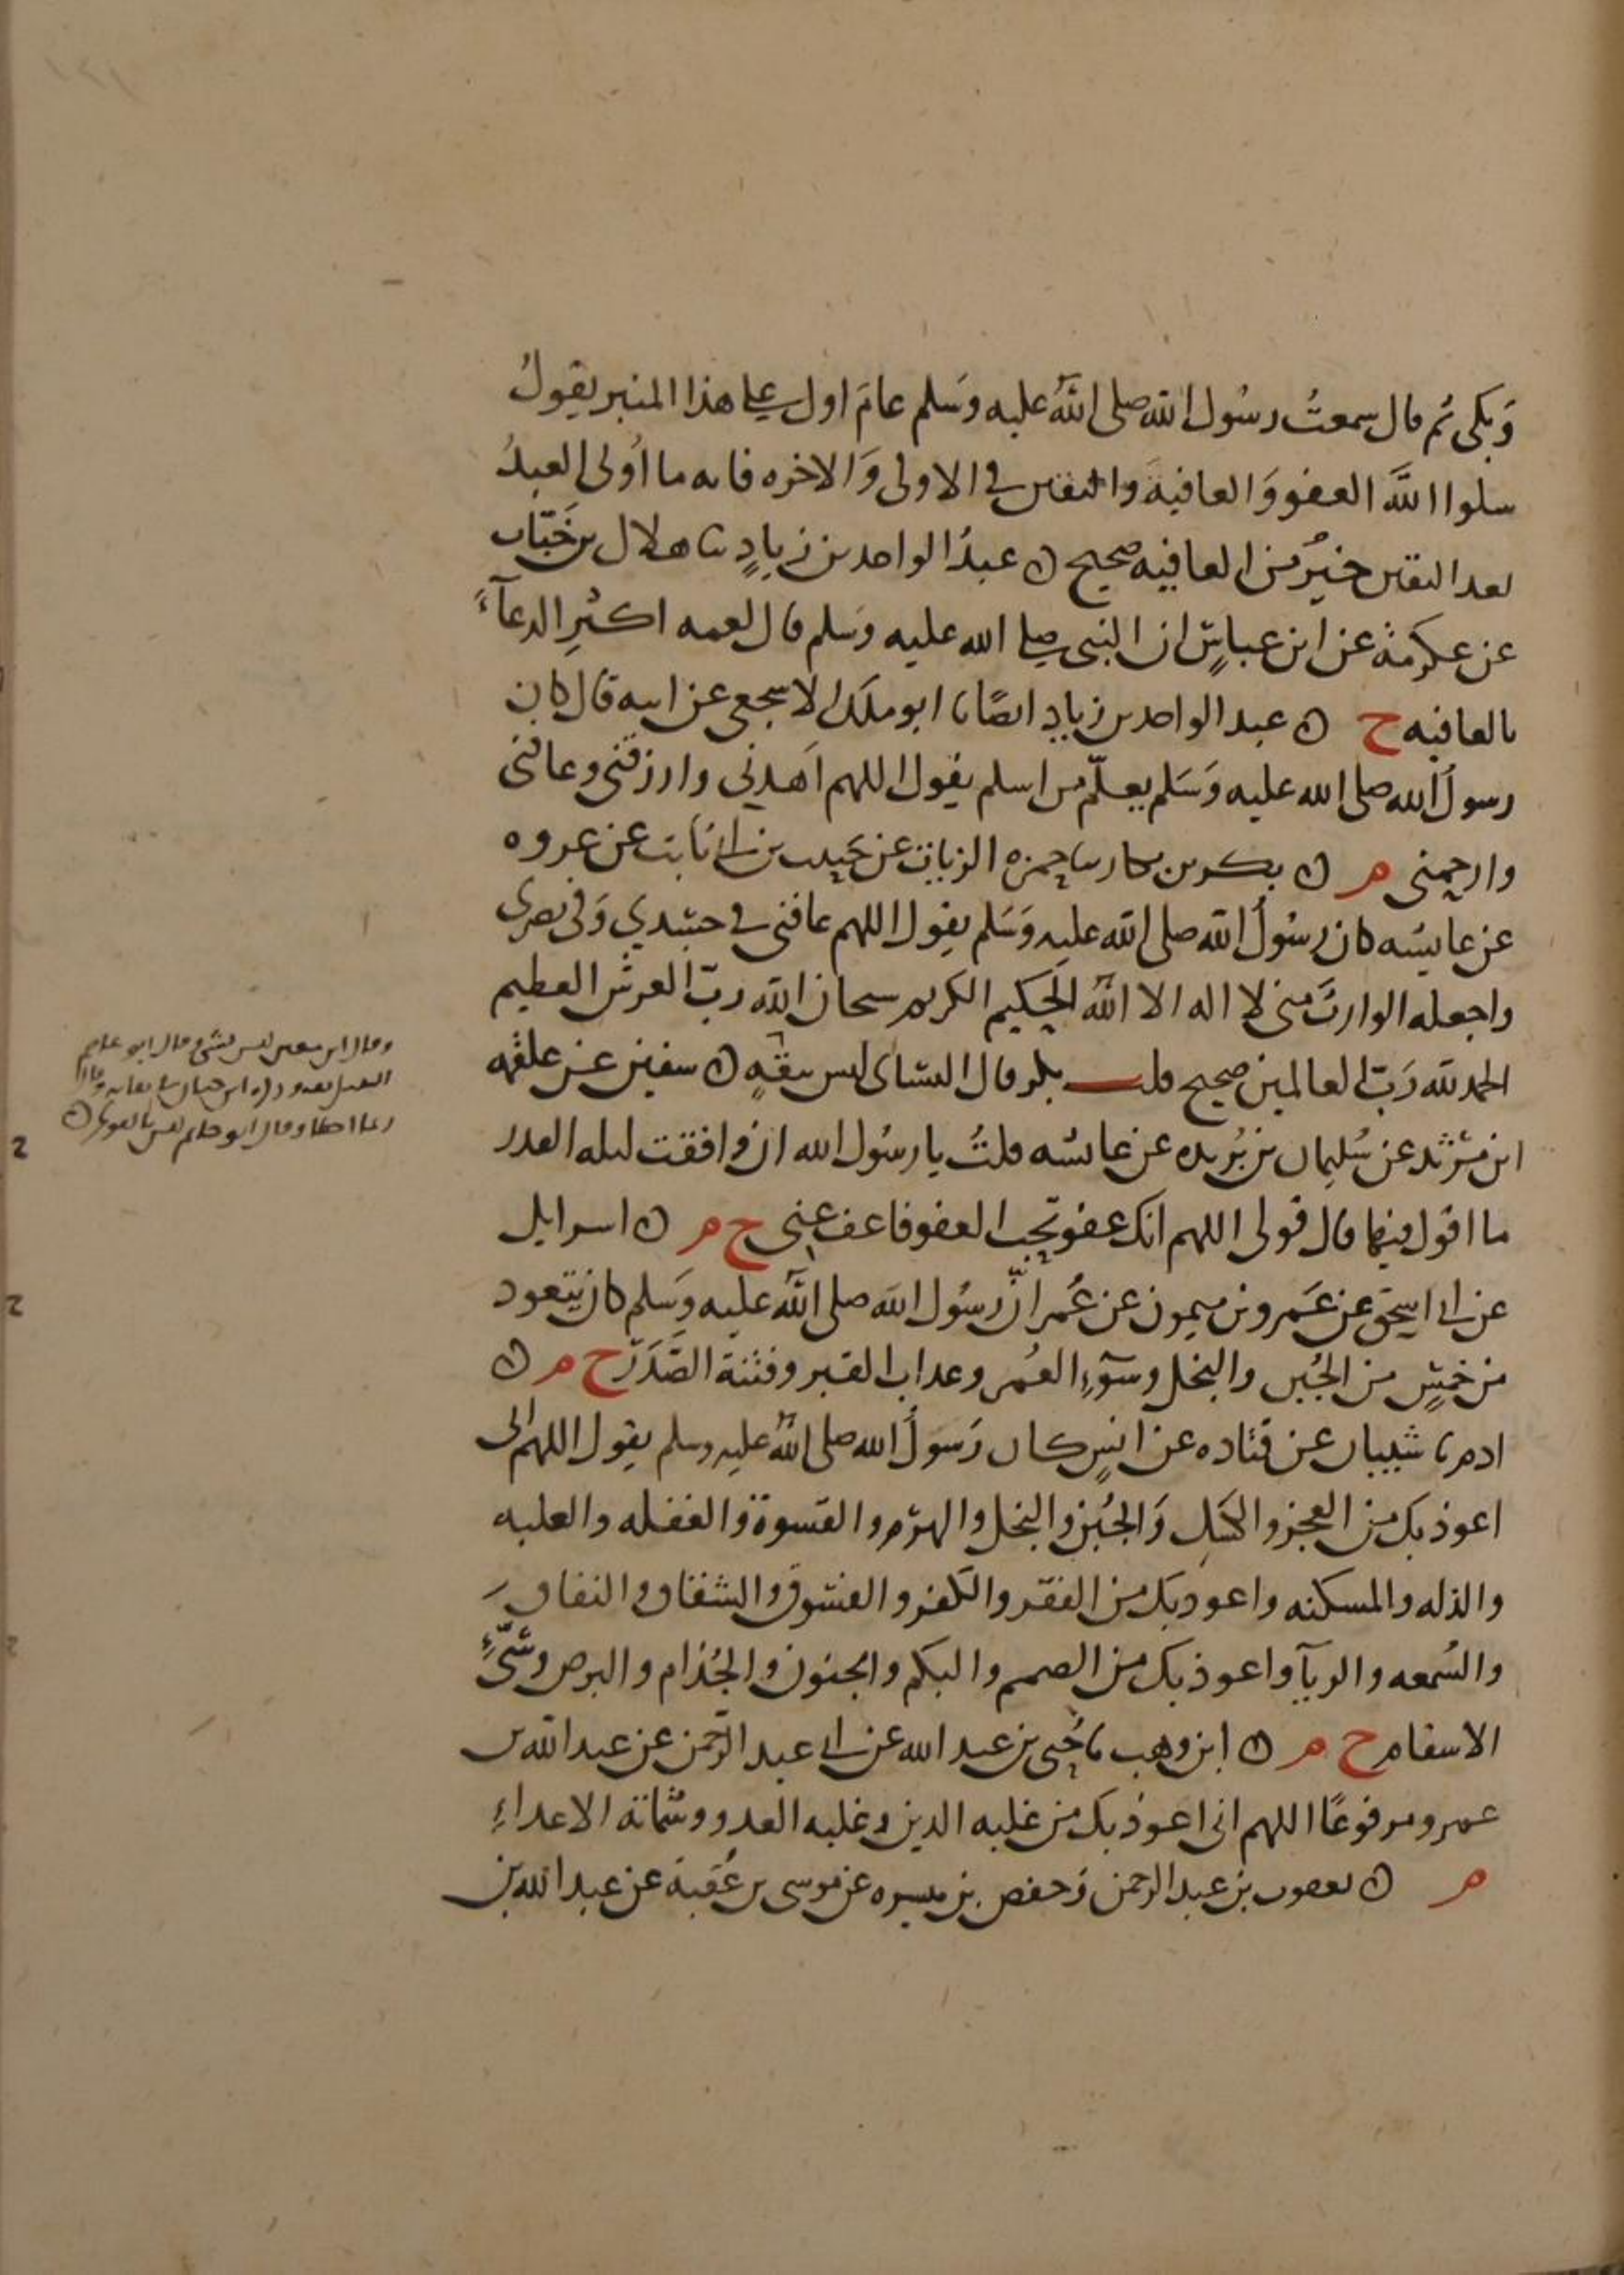 وَبكى ثم قال سمعتُ رسُول الله صلى اللهُ عليه وسَلم عامَ اول على هذا المنبر يقولُ
سلوا اللهَ العفو وَالعافيةَ واليقين في الاولى وَالاخره فانه ما أُولى العبدُ
بعد اليقين خيرٌ من العافيه صحيح ن عبدُ الواحد بن زيادٍ ثنا هلال بن خَبّاب
عن عكرمةَ عن ابن عباسٍ ان النبي صلى الله عليه وسَلم قال لعمه اكثِرِ الدعآءَ
بالعافيه خ ن عبد الواحد بن زياد ايضًا نا ابو ملك الاشجعي عن ابيه قال كان
رسولُ الله صلى الله عليه وَسَلم يعلّم من اسلم يقول اللهم اهدني وارزقني وعافني
وارحمني م ن بكر بن بكار نا حمزه الزيات عن حَبيب بن ابي ثابت عن عروه
عن عايشه كان رسُولُ الله صلى الله عليه وَسَلم يقول اللهم عافني في جسَدي وَفي بصري
واجعله الوارثَ مني لا اله الا اللهُ الحَكيم الكريم سبحان الله ربّ العرش العظيم
الحمد لله رَبّ العالمين صحيح قلت بكر قال النساي ليس بثقةٍ ن سفين عن علقمه
ابن مَرْثد عن سُليمان بن بُريده عن عائشه قلتُ يا رسُول الله ان وافقت ليله القدر
ما اقول فيها قال قولي اللهم انك عفو تحب العفو فاعف عني خ م ن اسرايل
عن ابي اسحق عن عَمرو بن ميمون عن عُمر انَّ رسُول الله صلى اللهُ عليه وَسَلم كان يتعود
من خمسٍ من الجُبن والبخل وسوٓءِ العُمر وعداب القبر وفتنة الصَدر خ م ن
ادم نا شيبان عن قتاده عن انسٍ كان رَسولُ الله صلى اللهُ عليه وسلم يقول اللهم اني
اعوذ بك من العجز والكسَل وَالجُبن والبخل والهرَم والقسوة والغفله والعليه
والذله والمسكنه واعوذ بك من الفقر والكفر والفسُوق والشقاق والنفاق
والسُمعه والريآ واعوذ بك من الصمم والبكم والجنون والجُذام والبرص وسَيّءِ
الاسقام خ م ن ابن وهب نا حُيي بن عبد الله عن ابي عبد الرّحمن عن عبد الله بن
عمرو مرفوعًا اللهم اني اعوذ بك من غلبه الدين وغلبه العدو وشماتة الاعداءِ
م ن يعقوب بن عبد الرحمن وَحفص بن ميسره عن موسى بن عُقبة عن عبد الله بن
وقال ابن معين ليس بشي وقال ابو عاصم
النبيل ثقه وذكره ابن حبان في ثقاته وقال
ربما اخطا وقال ابو حاتم ليس بالقوي ن